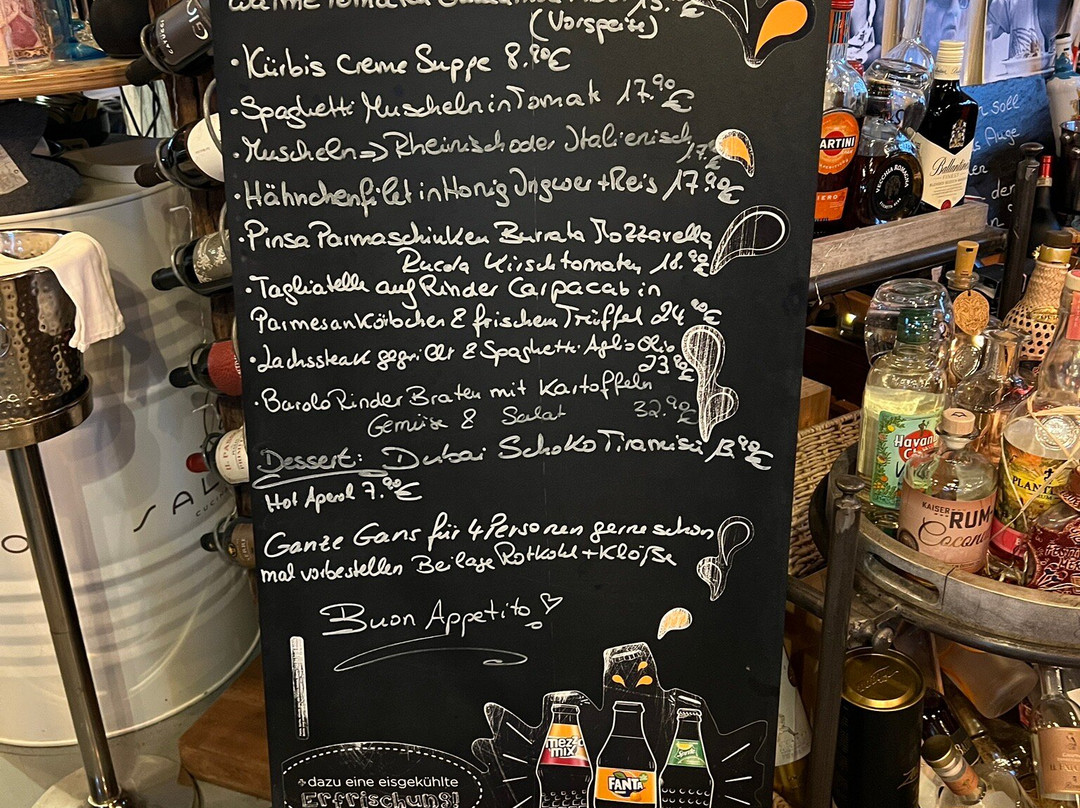 (Vorspeise)
• Kürbis Creme Suppe 8.90€
• Spaghetti Muscheln in Tomate 17.90€
• Muscheln => Rheinisch oder Italienisch
17.
• Hähnchenfilet in Honig Ingwer + Reis 17.90€
• Pinsa Parmaschinken Burrata Mozzarella
Rucola Kirschtomaten 18.90€
• Tagliatelle auf Rinder Carpaccio in
Parmesankörbchen & frischem Trüffel 24.90€
• Lachssteak gegrillt & Spaghetti Aglio Olio
23.90€
• Barolo Rinder Braten mit Kartoffeln
Gemüse & Salat 32.90€
Dessert: Dubai Schoko Tiramisu 13.90€
Hot Aperol 7.90€
Ganze Gans für 4 Personen gerne schon
mal vorbestellen Beilage Rotkohl + Klöße
Buon Appetito
mezzo
mix
FANTA
Sprite
+ dazu eine eisgekühlte
Erfrischung!
SAL
ARTINI
VECCHIA ROMAGNA
Ballantine's
soll
Auge
Havana
PLANT
KAISER
RUM
Coconut